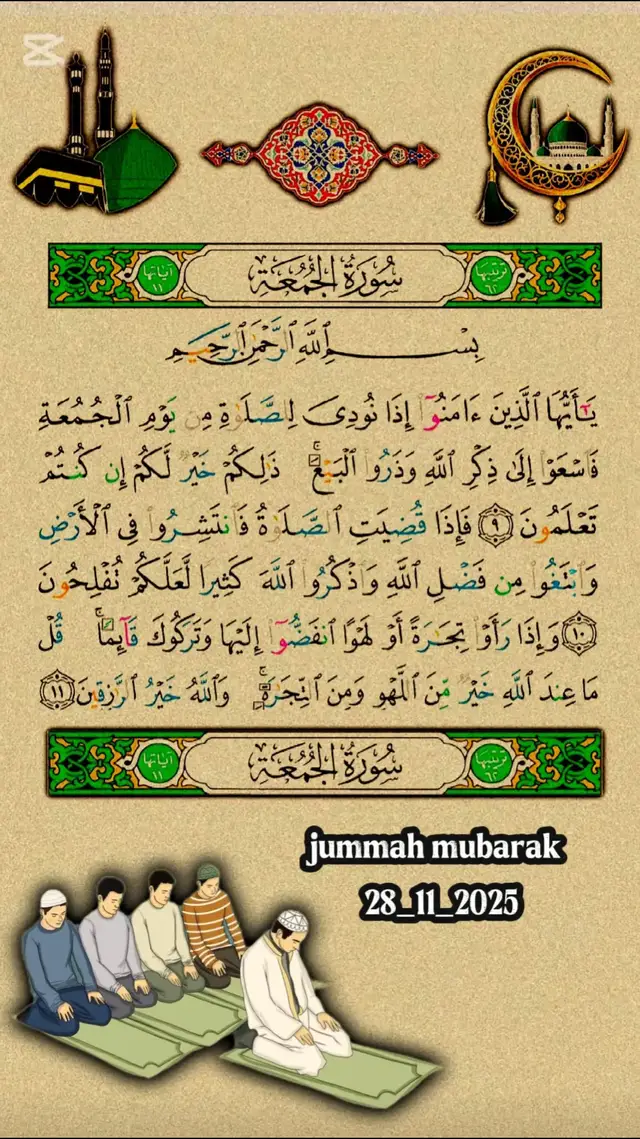 سُورَةُ الجُمُعَةِ
ترتيبها ٦٢
آياتها ١١
بِسْمِ اللَّهِ الرَّحْمَٰنِ الرَّحِيمِ
يَٰٓأَيُّهَا الَّذِينَ ءَامَنُوٓا۟ إِذَا نُودِىَ لِلصَّلَوٰةِ مِن يَوْمِ الْجُمُعَةِ
فَاسْعَوْا۟ إِلَىٰ ذِكْرِ اللَّهِ وَذَرُوا۟ الْبَيْعَ ۚ ذَٰلِكُمْ خَيْرٌ لَّكُمْ إِن كُنتُمْ
تَعْلَمُونَ ٩ فَإِذَا قُضِيَتِ الصَّلَوٰةُ فَانتَشِرُوا۟ فِى الْأَرْضِ
وَابْتَغُوا۟ مِن فَضْلِ اللَّهِ وَاذْكُرُوا۟ اللَّهَ كَثِيرًا لَّعَلَّكُمْ تُفْلِحُونَ
١٠ وَإِذَا رَأَوْا۟ تِجَٰرَةً أَوْ لَهْوًا انفَضُّوٓا۟ إِلَيْهَا وَتَرَكُوكَ قَآئِمًا ۚ قُلْ
مَا عِندَ اللَّهِ خَيْرٌ مِّنَ اللَّهْوِ وَمِنَ التِّجَٰرَةِ ۚ وَاللَّهُ خَيْرُ الرَّٰزِقِينَ ١١
سُورَةُ الجُمُعَةِ
ترتيبها ٦٢
آياتها ١١
jummah mubarak
28_11_2025